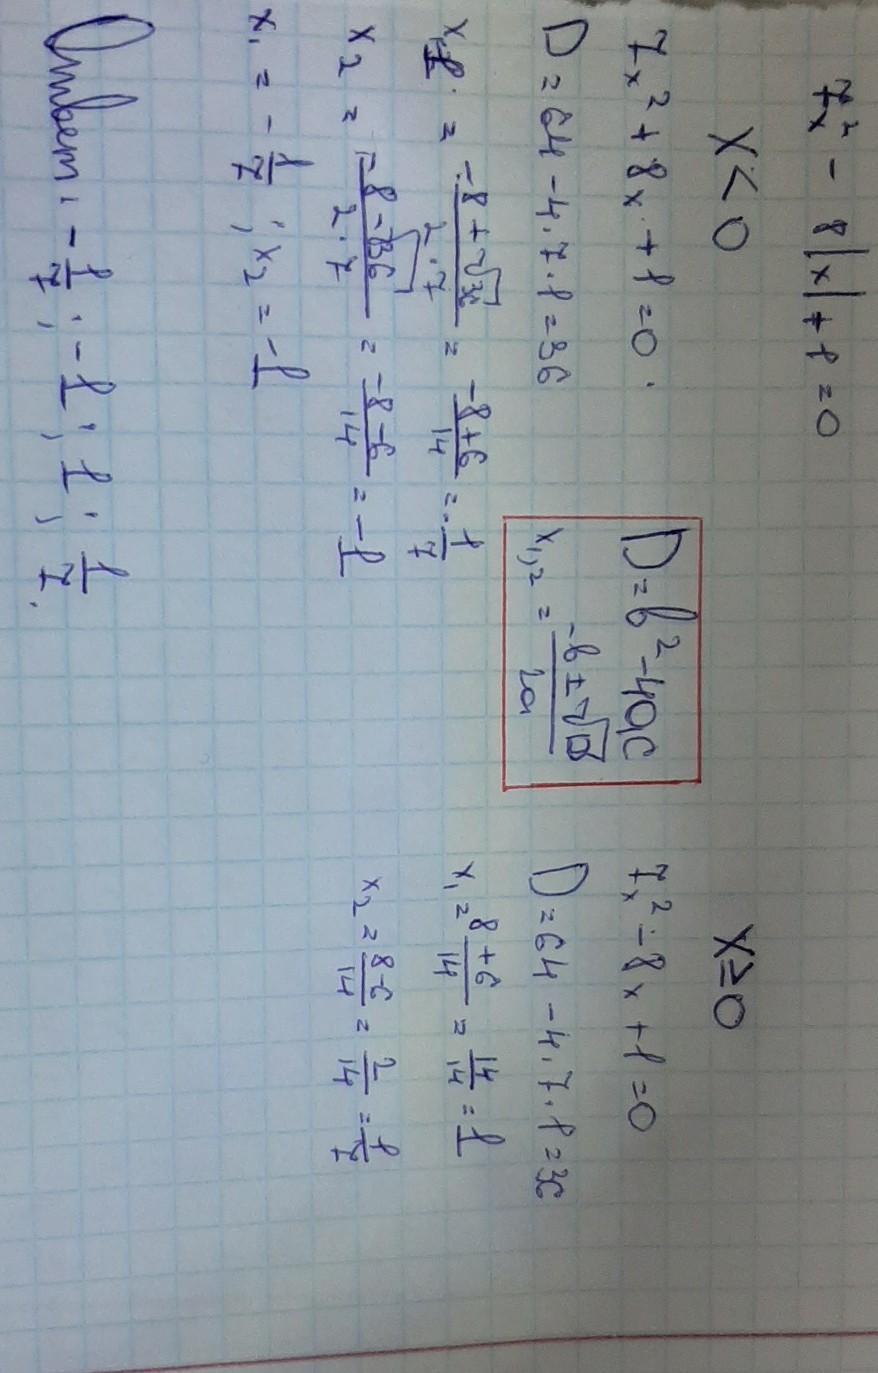 7x² - 8|x| + 1 = 0
x < 0
7x² + 8x + 1 = 0.
D = 64 - 4·7·1 = 36
x₁ = (-8 + √36)/(2·7) = (-8+6)/14 = -1/7
x₂ = (-8 - √36)/(2·7) = (-8-6)/14 = -1
x₁ = -1/7; x₂ = -1
D = b² - 4ac
x₁,₂ = (-b ± √D)/2a
x ≥ 0
7x² - 8x + 1 = 0
D = 64 - 4·7·1 = 36
x₁ = (8+6)/14 = 14/14 = 1
x₂ = (8-6)/14 = 2/14 = 1/7
Ответ: -1/7; -1; 1; 1/7.